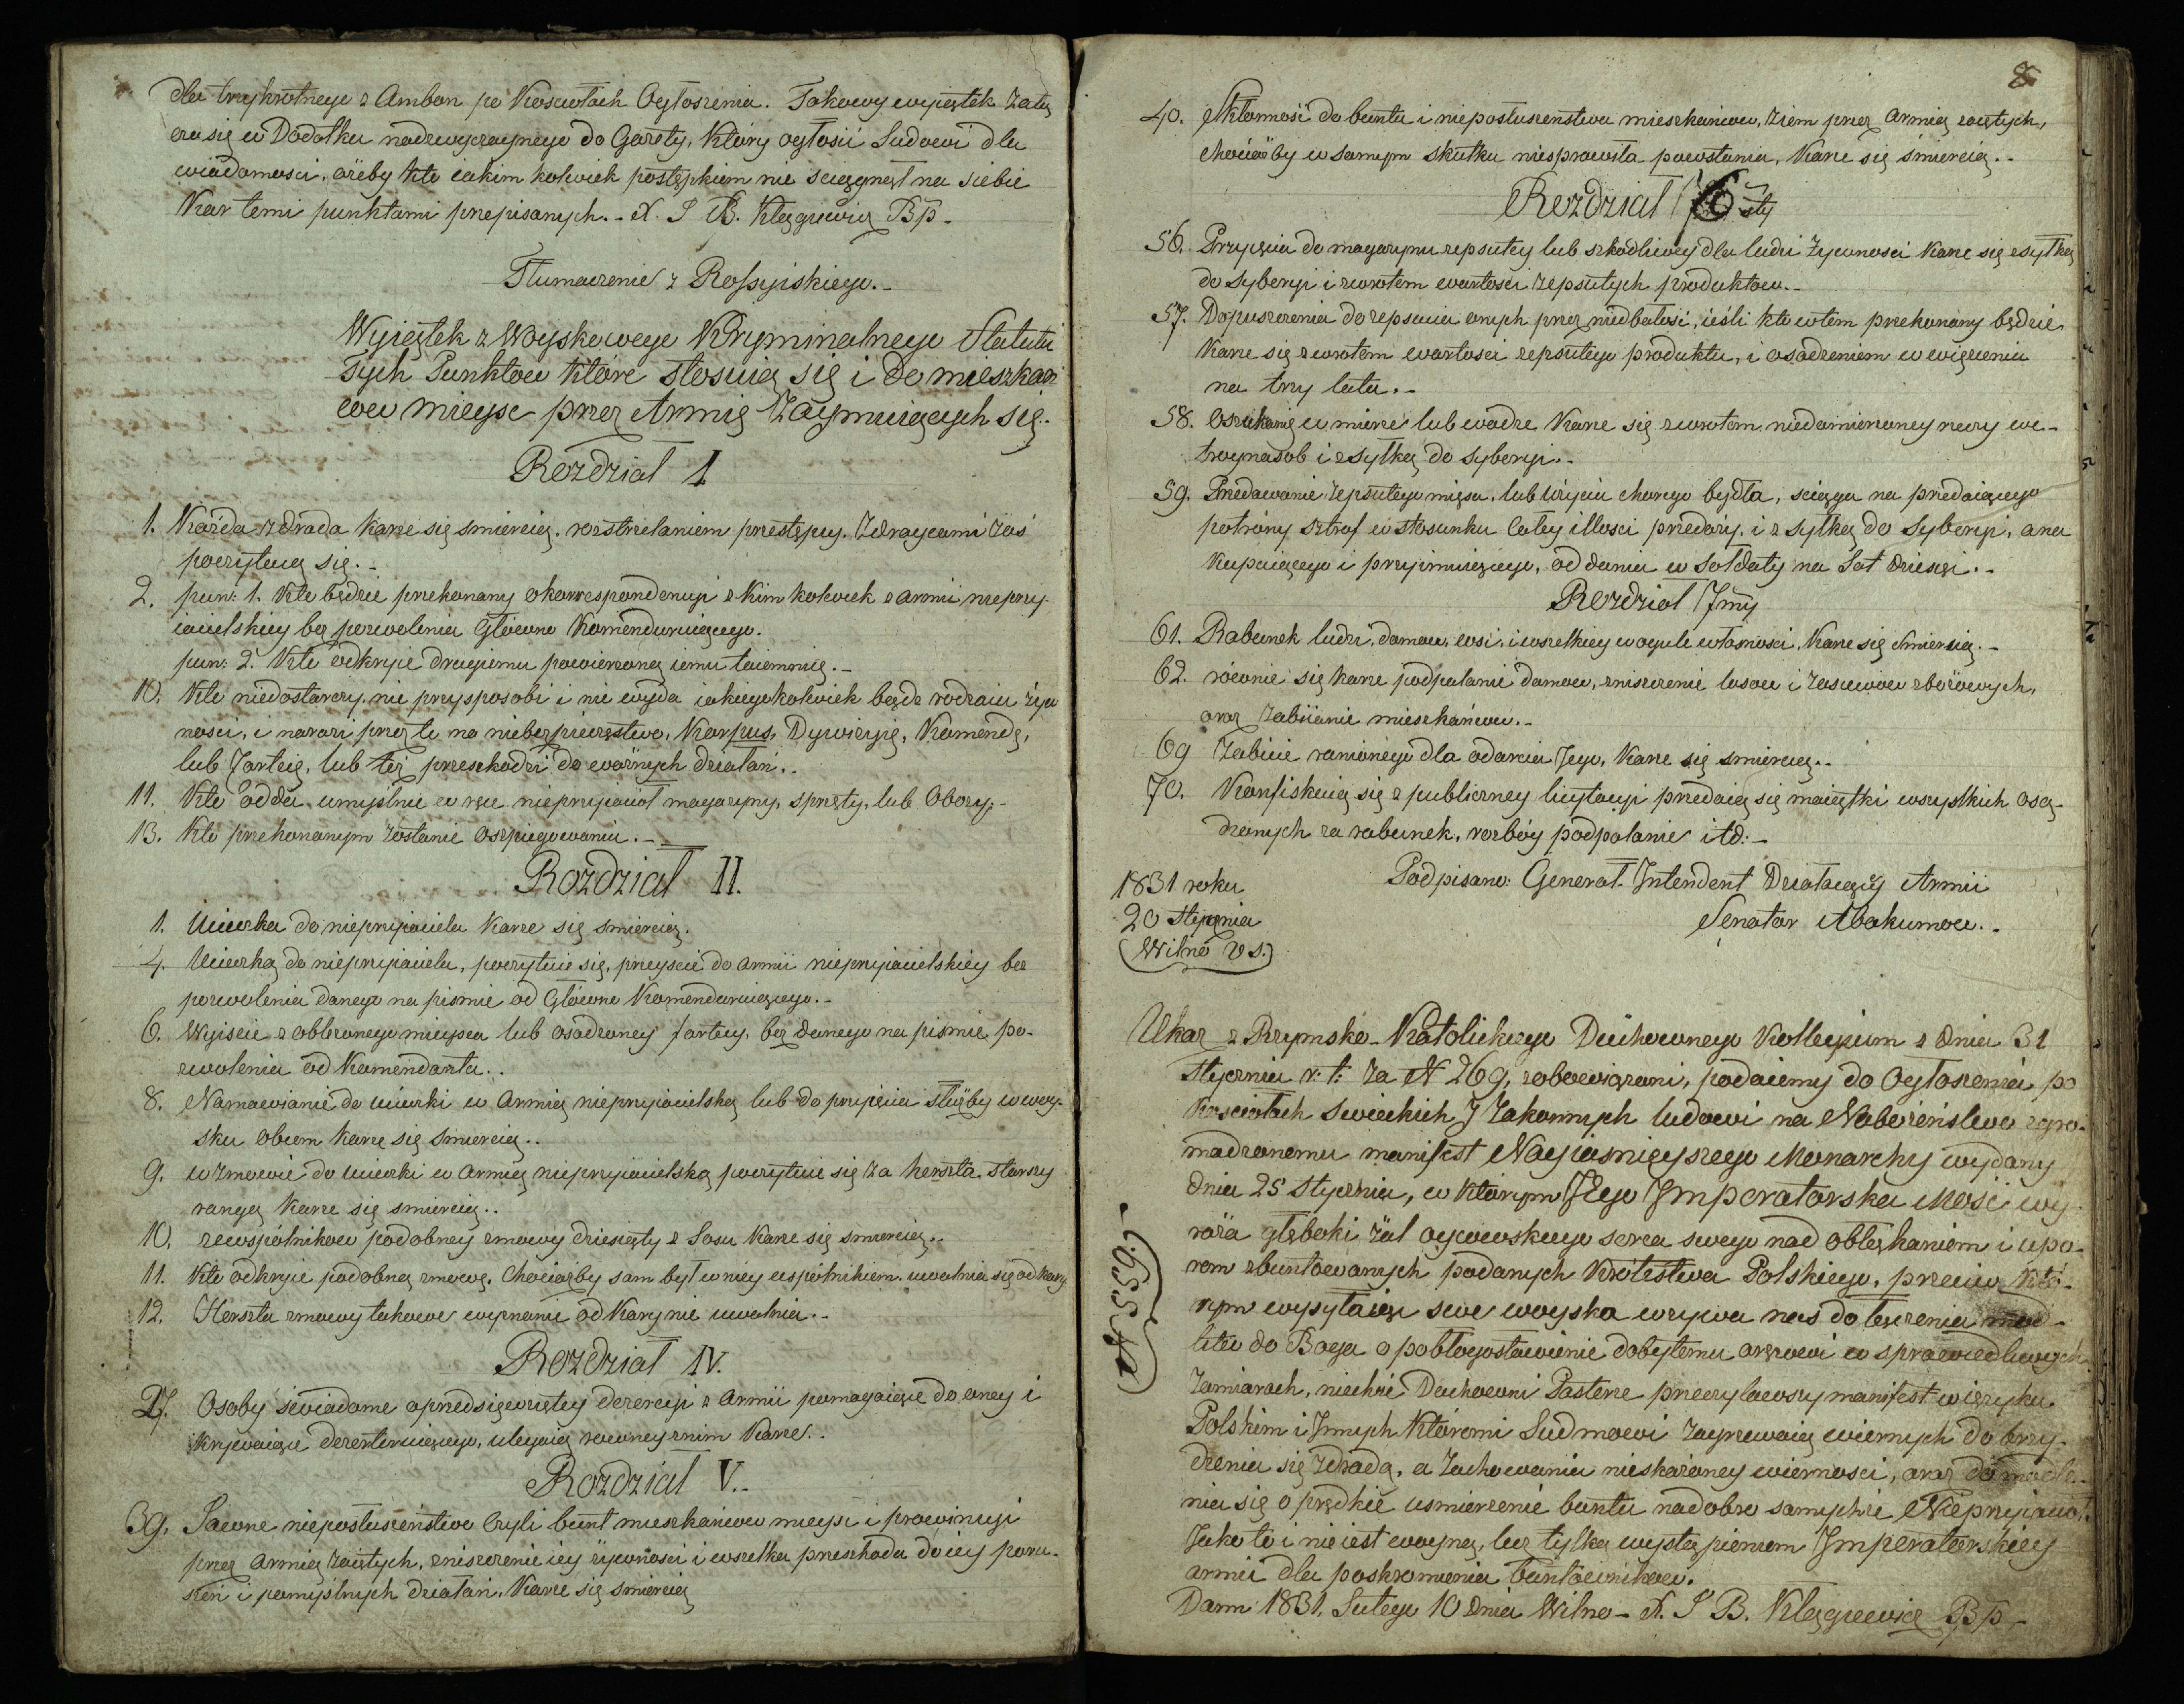 dla trzykrotnego z Ambon po Kosciołach Ogłoszenia. Takowy wyiątek załą
cza się w Dodatku nadzwyczaynego do Gazety, który ogłosić Ludowi dla
wiadomosci, ażeby kto iakim kolwiek postępkiem nie sciągnął na siebie
Kar temi punktami przepisanych. - X. J B. Kłągiewicz Bp -
Tłumaczenie z Rossyiskiego. -
Wyiątek z Woyskowego Kryminalnego Statutu
Tych Punktow które stosuią się i do mieszkań
cow mieysc przez Armią Zaymuiących się. -
Rozdział I
1. Każda zdrada karze się smiercią, rozstrzelaniem przestępcy. Zdraycami zaś
poczytaią się. -
2. pun: 1. Kto będzie przekonany o korrespondencyi z kim kolwiek z armii nieprzy-
iacielskiey bez pozwolenia Główno Komenderuiącego.
pun: 2. Kto odkryie drugiemu powierzoną iemu taiemnicę. -
10. Kto niedostarczy, nie przysposobi i nie wyda iakiegokolwiek bądz rodzaiu żyw
nosci, i narazi przez to na niebezpieczeństwo, Korpus, Dywizyią, Komendę,
lub Fortecę, lub też przeszkodzi do ważnych działań. .
11. Kto odda umyślnie w ręce nieprzyiacioł magazyny, sprzęty, lub Obozy; -
13. Kto przekonanym zostanie o szpiegowaniu. - -
Rozdział II.
1. Ucieczka do nieprzyiaciela karze się smiercią.
4. Ucieczką do nieprzyiaciela, poczytuie się, przeyscie do armii nieprzyiacielskiey bez
pozwolenia danego na pismie od Główno Komenderuiącego. -
6. Wyiscie z oblężonego mieysca lub osadzoney fortecy, bez danego na pismie po-
zwolenia od Komendanta. .
8. Namawianie do ucieczki w Armią nieprzyiacielską lub do przyięcia służby w woy-
sku obcem karze się smiercią. .
9. w zmowie do ucieczki w Armią nieprzyiacielską poczytuie się za herszta starszy
rangą karze się smiercią. .
10. ze wspólnikow podobney zmowy dziesiąty z Losu karze się smiercią. .
11. Kto odkryie podobną zmowę, chociażby sam był w niey uspólnikiem uwalnia się od kary
12. Herszta zmowy takowe wyznanie od Kary nie uwalnia. -
Rozdział IV.
27. Osoby swiadome o przedsięwziętey dezercyi z Armii pomagaiące do oney i
ukrywaiące dezerteruiącego, ulegaią rowney z nim Karze. .
Rozdział V. -
39. Jawne nieposłuszeństwo czyli bunt mieszkańcow mieysc i prowincyi
przez Armią zaiętych, zniszczenie iey żywności i wszelka przeszkoda do iey poru-
szeń i pomyślnych działań, Karze się smiercią
8
40. Skłonność do buntu i nieposłuszenstwa mieszkańcow, ziem przez Armią zaiętych,
chociażby w samym skutku niesprawiła powstania, Karze się śmiercią. -
Rozdział 6 sty
56. Przyięcia do magazynu zepsutey lub szkodliwey dla ludzi żywnosci karze się zsyłką
do Syberyi i zwrotem wartości zepsutych produktow. -
57. Dopuszczenia do zepsucia onych przez niedbałość, ieśli kto w tem przekonany będzie
Karze się zwrotem wartosci zepsutego produktu, i osadzeniem w więzieniu
na trzy lata. -
58. Oszukanie w mierze lub wadze karze się zwrotem niedomierzoney rzeczy we-
troynasob i zsyłką do Syberyi. -
59. Przedawanie zepsutego mięsa, lub użycia chorego bydła, sciąga na przedaiącego
potróyny sztraf w stosunku całey illosci przedaży, i zsyłką do Syberyi, a na
kupuiącego i przyimuiącego, oddania w soldaty na Lat dziesięć. -
Rozdział 7my
61. Rabunek ludzi, domow, wsi, i wszelkiey w ogule własnosci, karze się smiercią. -
62. rownie się karze podpalanie domow, zniszczenie lasow i zasiewow zbożowych,
oraz zabiianie mieszkańcow. -
69 Zabicie ranionego dla odarcia Jego, Karze się smiercią. .
70. Konfiskuią się z publiczney licytacyi przedaią się maiątki wszystkich osą-
dzonych za rabunek, rozbóy podpalanie itd: -
1831 roku
20 Stycznia
(Wilno v s.)
Podpisano: Generał Intendent Działaiącey Armii
Senator Abakumow. -
Ukaz z Rzymsko-Katolickiego Duchownego Kollegium z dnia 31
Stycznia r: t: za N 269, zobowiązani, podaiemy do Ogłoszenia po
Kosciołach swieckich J Zakonnych ludowi na Nabożeństwo zgro-
madzonemu manifest Nayiasnieyszego Monarchy wydany
dnia 25 Stycznia, w którym JEgo Jmperatorska Mość wy-
raża głęboki żal oycowskiego serca swego nad obłąkaniem i upo-
rem zbuntowanych podanych Królestwa Polskiego, przeciw któ-
rym wysyłaiąc swe woyska wzywa nas do łączenia mod-
litw do Boga o pobłogosławienie dobytemu orężowi w sprawiedliwych
Zamiarach, niechże Duchowni Pasterze przeczytawszy manifest w ięzyku
Polskim i Jnnych któremi Lud mowi zagrzewaią wiernych do brzy-
dzenia się zdradą, a zachowania nieskażoney wiernosci, oraz do modle-
nia się o prędkie usmierzenie buntu na dobro samychże Nieprzyiaciół.
Jako to i nie iest woyną, lecz tylko wystąpieniem Jmperatorskiey
armii dla poskromienia buntowników.
Dann 1831. Lutego 10 dnia Wilno - X. J B. Kłągiewicz Bp -
N 559.